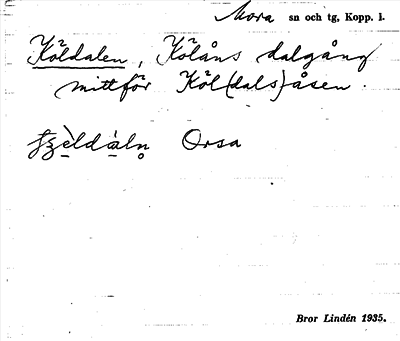 Mora sn och tg, Kopp. l.
Köldalen, Kölåns dalgång
mittför Köl(dals)åsen.
Orsa
Bror Lindén 1935.